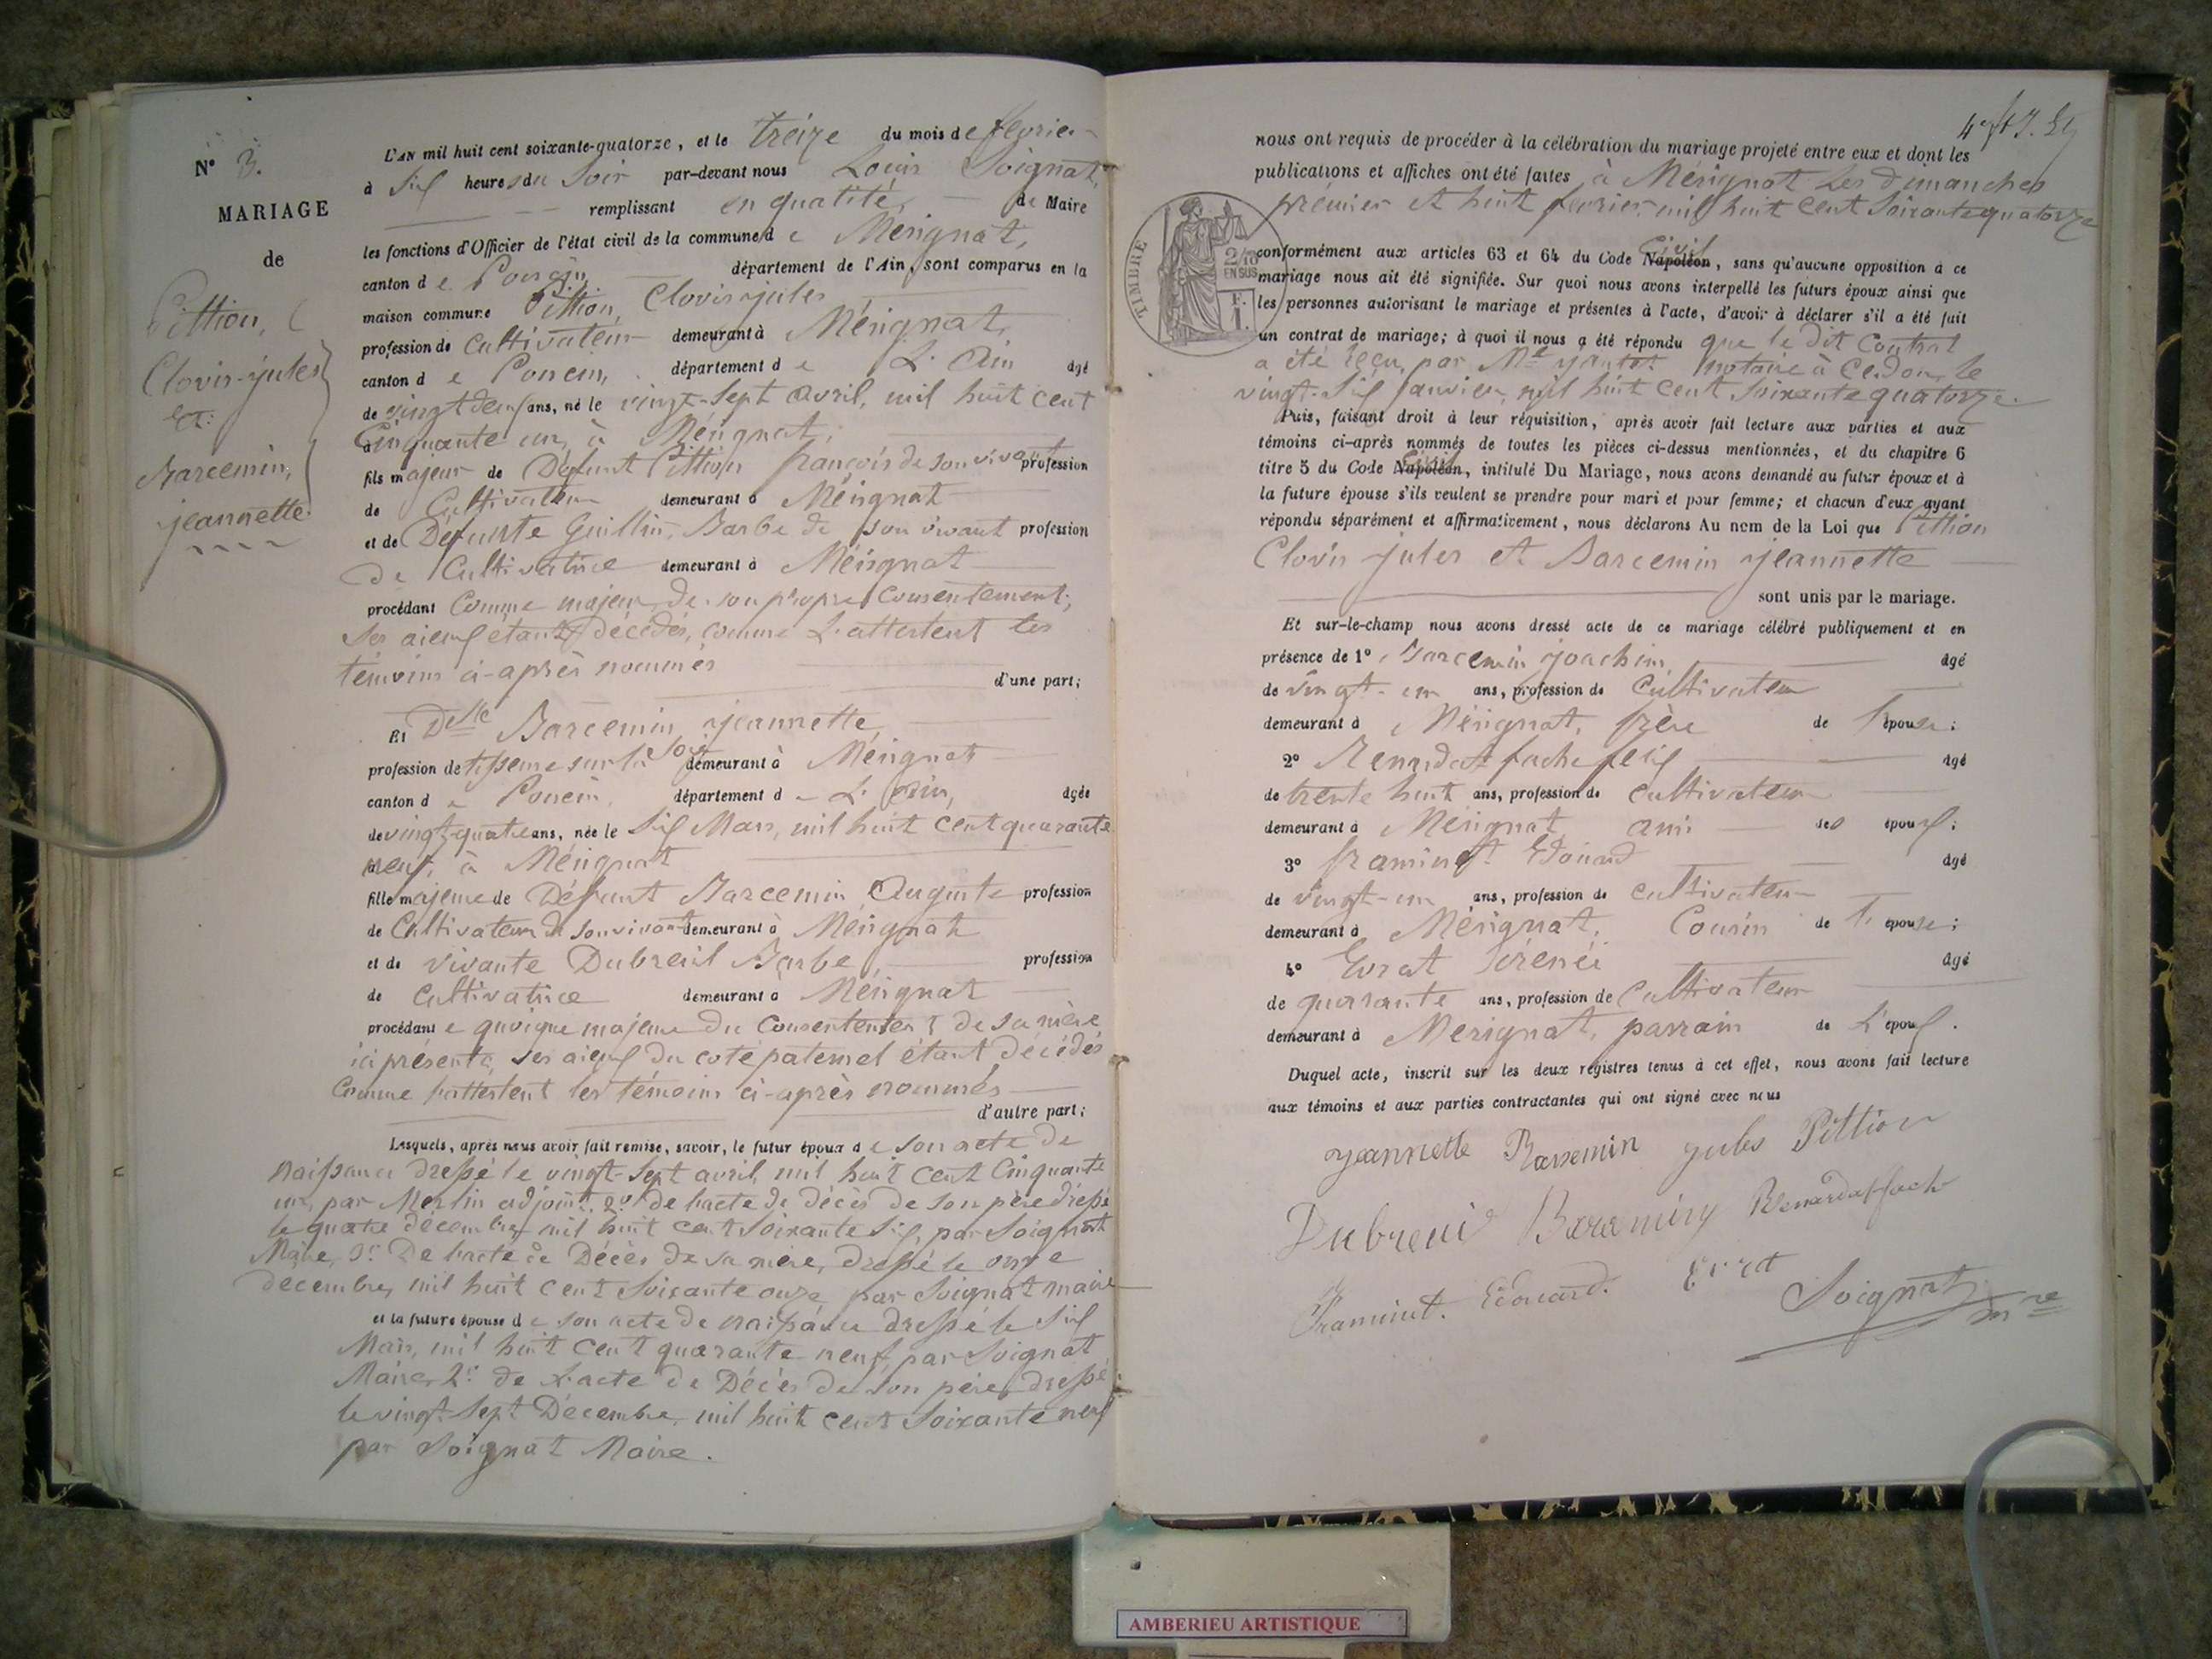 N° 3.
MARIAGE
de
Pittion,
Clovis-jules
et
Barcemin,
jeannette
L'AN mil huit cent soixante-quatorze, et le treize du mois de fevrier
à Six heures du Soir par-devant nous Louis Soignat,
remplissant en qualité de Maire
les fonctions d'Officier de l'état civil de la commune de Mérignat,
canton de Poncin, département de l'Ain, sont comparus en la
maison commune Pittion, Clovis-jules
profession de Cultivateur demeurant à Mérignat,
canton de Poncin, département de L'Ain âgé
de vingt deux ans, né le vingt-Sept Avril, mil huit cent
Cinquante un, à Mérignat,
fils majeur de Défunt Pittion françois de son vivant profession
de Cultivateur demeurant à Mérignat
et de Défunte Guillin, Barbe de son vivant profession
de Cultivatrice demeurant à Mérignat
procédant Comme majeur de son propre Consentement,
Ses aïeux étant décédés, comme L'attestent les
témoins ci-après nommés
d'une part;
Et Delle Barcemin jeannette
profession de tisseuse sur la Soie demeurant à Mérignat
canton de Poncin, département de L'Ain, âgée
de vingt-quatre ans, née le Six Mars, mil huit cent quarante
neuf, à Mérignat
fille majeure de Défunt Barcemin Auguste profession
de Cultivateur de son vivant demeurant à Mérignat
et de vivante Dubreuil Barbe profession
de Cultivatrice demeurant à Mérignat
procédant e quoique majeure du Consentement de sa mère
ici présente, ses aïeux du coté paternel étant décédés
Comme l'attestent les témoins ci-après nommés
d'autre part;
Lesquels, après nous avoir fait remise, savoir, le futur époux de son acte de
naissance dressé le vingt-Sept avril, mil huit cent Cinquante
un, par Merlin adjoint, 2° de l'acte de décès de son père dressé
le quatre décembre mil huit cent soixante Six, par Soignat
Maire, 3° De l'acte de Décès de sa mère, dressé le onze
décembre, mil huit cent Soixante onze par Soignat maire
et la future épouse de son acte de naissance dressé le Six
Mars, mil huit cent quarante neuf, par Soignat
Maire, 2° de L'acte de Décès de son père, dressé
le vingt-Sept Décembre, mil huit cent Soixante neuf
par Soignat Maire.
nous ont requis de procéder à la célébration du mariage projeté entre eux et dont les
publications et affiches ont été faites à Mérignat Les dimanches
premier et huit fevrier mil huit cent Soixante quatorze
TIMBRE
2/10
EN SUS
F.
1.
conformément aux articles 63 et 64 du Code Napoléon Civil, sans qu'aucune opposition à ce
mariage nous ait été signifiée. Sur quoi nous avons interpellé les futurs époux ainsi que
les personnes autorisant le mariage et présentes à l'acte, d'avoir à déclarer s'il a été fait
un contrat de mariage; à quoi il nous a été répondu que le dit Contrat
a été reçu par Me notaire à Cerdon, le
vingt-Six Janvier, mil huit cent Soixante quatorze.
Puis, faisant droit à leur réquisition, après avoir fait lecture aux parties et aux
témoins ci-après nommés de toutes les pièces ci-dessus mentionnées, et du chapitre 6
titre 5 du Code Napoléon Civil, intitulé Du Mariage, nous avons demandé au futur époux et à
la future épouse s'ils veulent se prendre pour mari et pour femme; et chacun d'eux ayant
répondu séparément et affirmativement, nous déclarons Au nom de la Loi que Pittion
Clovis jules et Barcemin jeannette
sont unis par le mariage.
Et sur-le-champ nous avons dressé acte de ce mariage célébré publiquement et en
présence de 1° Barcemin joachim, âgé
de vingt-un ans, profession de Cultivateur
demeurant à Mérignat, frère de l'épouse;
2° Renardat-fache felix âgé
de trente huit ans, profession de cultivateur
demeurant à Mérignat ami des époux;
3° framinet Edouard âgé
de vingt-un ans, profession de cultivateur
demeurant à Mérignat, Cousin de l'épouse;
4° Evrat Irénée âgé
de quarante ans, profession de Cultivateur
demeurant à Merignat, parrain de L'époux.
Duquel acte, inscrit sur les deux registres tenus à cet effet, nous avons fait lecture
aux témoins et aux parties contractantes qui ont signé avec nous
jeannette Barsemin jules Pittion
Dubreuil Renardatfache
Framinet. Edouard. Evrat Soignat
mre
AMBERIEU ARTISTIQUE